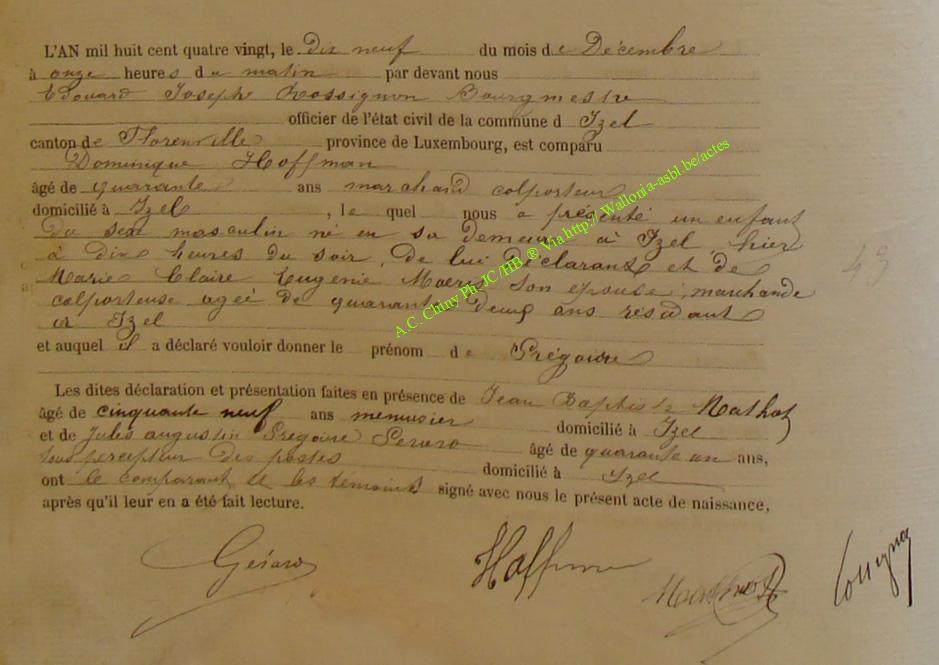 L'AN mil huit cent quatre vingt, le dix neuf du mois de Décembre
à onze heures du matin par devant nous
Edouard Joseph Rossignon Bourgmestre
officier de l'état civil de la commune d Izel
canton de Florenville province de Luxembourg, est comparu
Dominique Hoffman
âgé de quarante ans marchand colporteur
domicilié à Izel, le quel nous a présenté un enfant
du sexe masculin né en sa demeure à Izel, hier
à dix heures du soir, de lui déclarant et de
Marie Claire Eugenie son épouse, marchande
colporteuse agée de quarante deux ans résidant
à Izel
et auquel il a déclaré vouloir donner le prénom de Grégoire
Les dites déclaration et présentation faites en présence de Jean Baptiste Mathot
âgé de cinquante neuf ans menusier domicilié à Izel
et de Jules augustin Gregoire Gerard âgé de quarante un ans,
sous percepteur des postes domicilié à Izel
ont le comparant et les témoins signé avec nous le présent acte de naissance,
après qu'il leur en a été fait lecture.
Gérard Hoffman Mathot Rossignon
A.C. Chiny Ph.JC/HB ® Via http://.Wallonia-asbl.be/actes